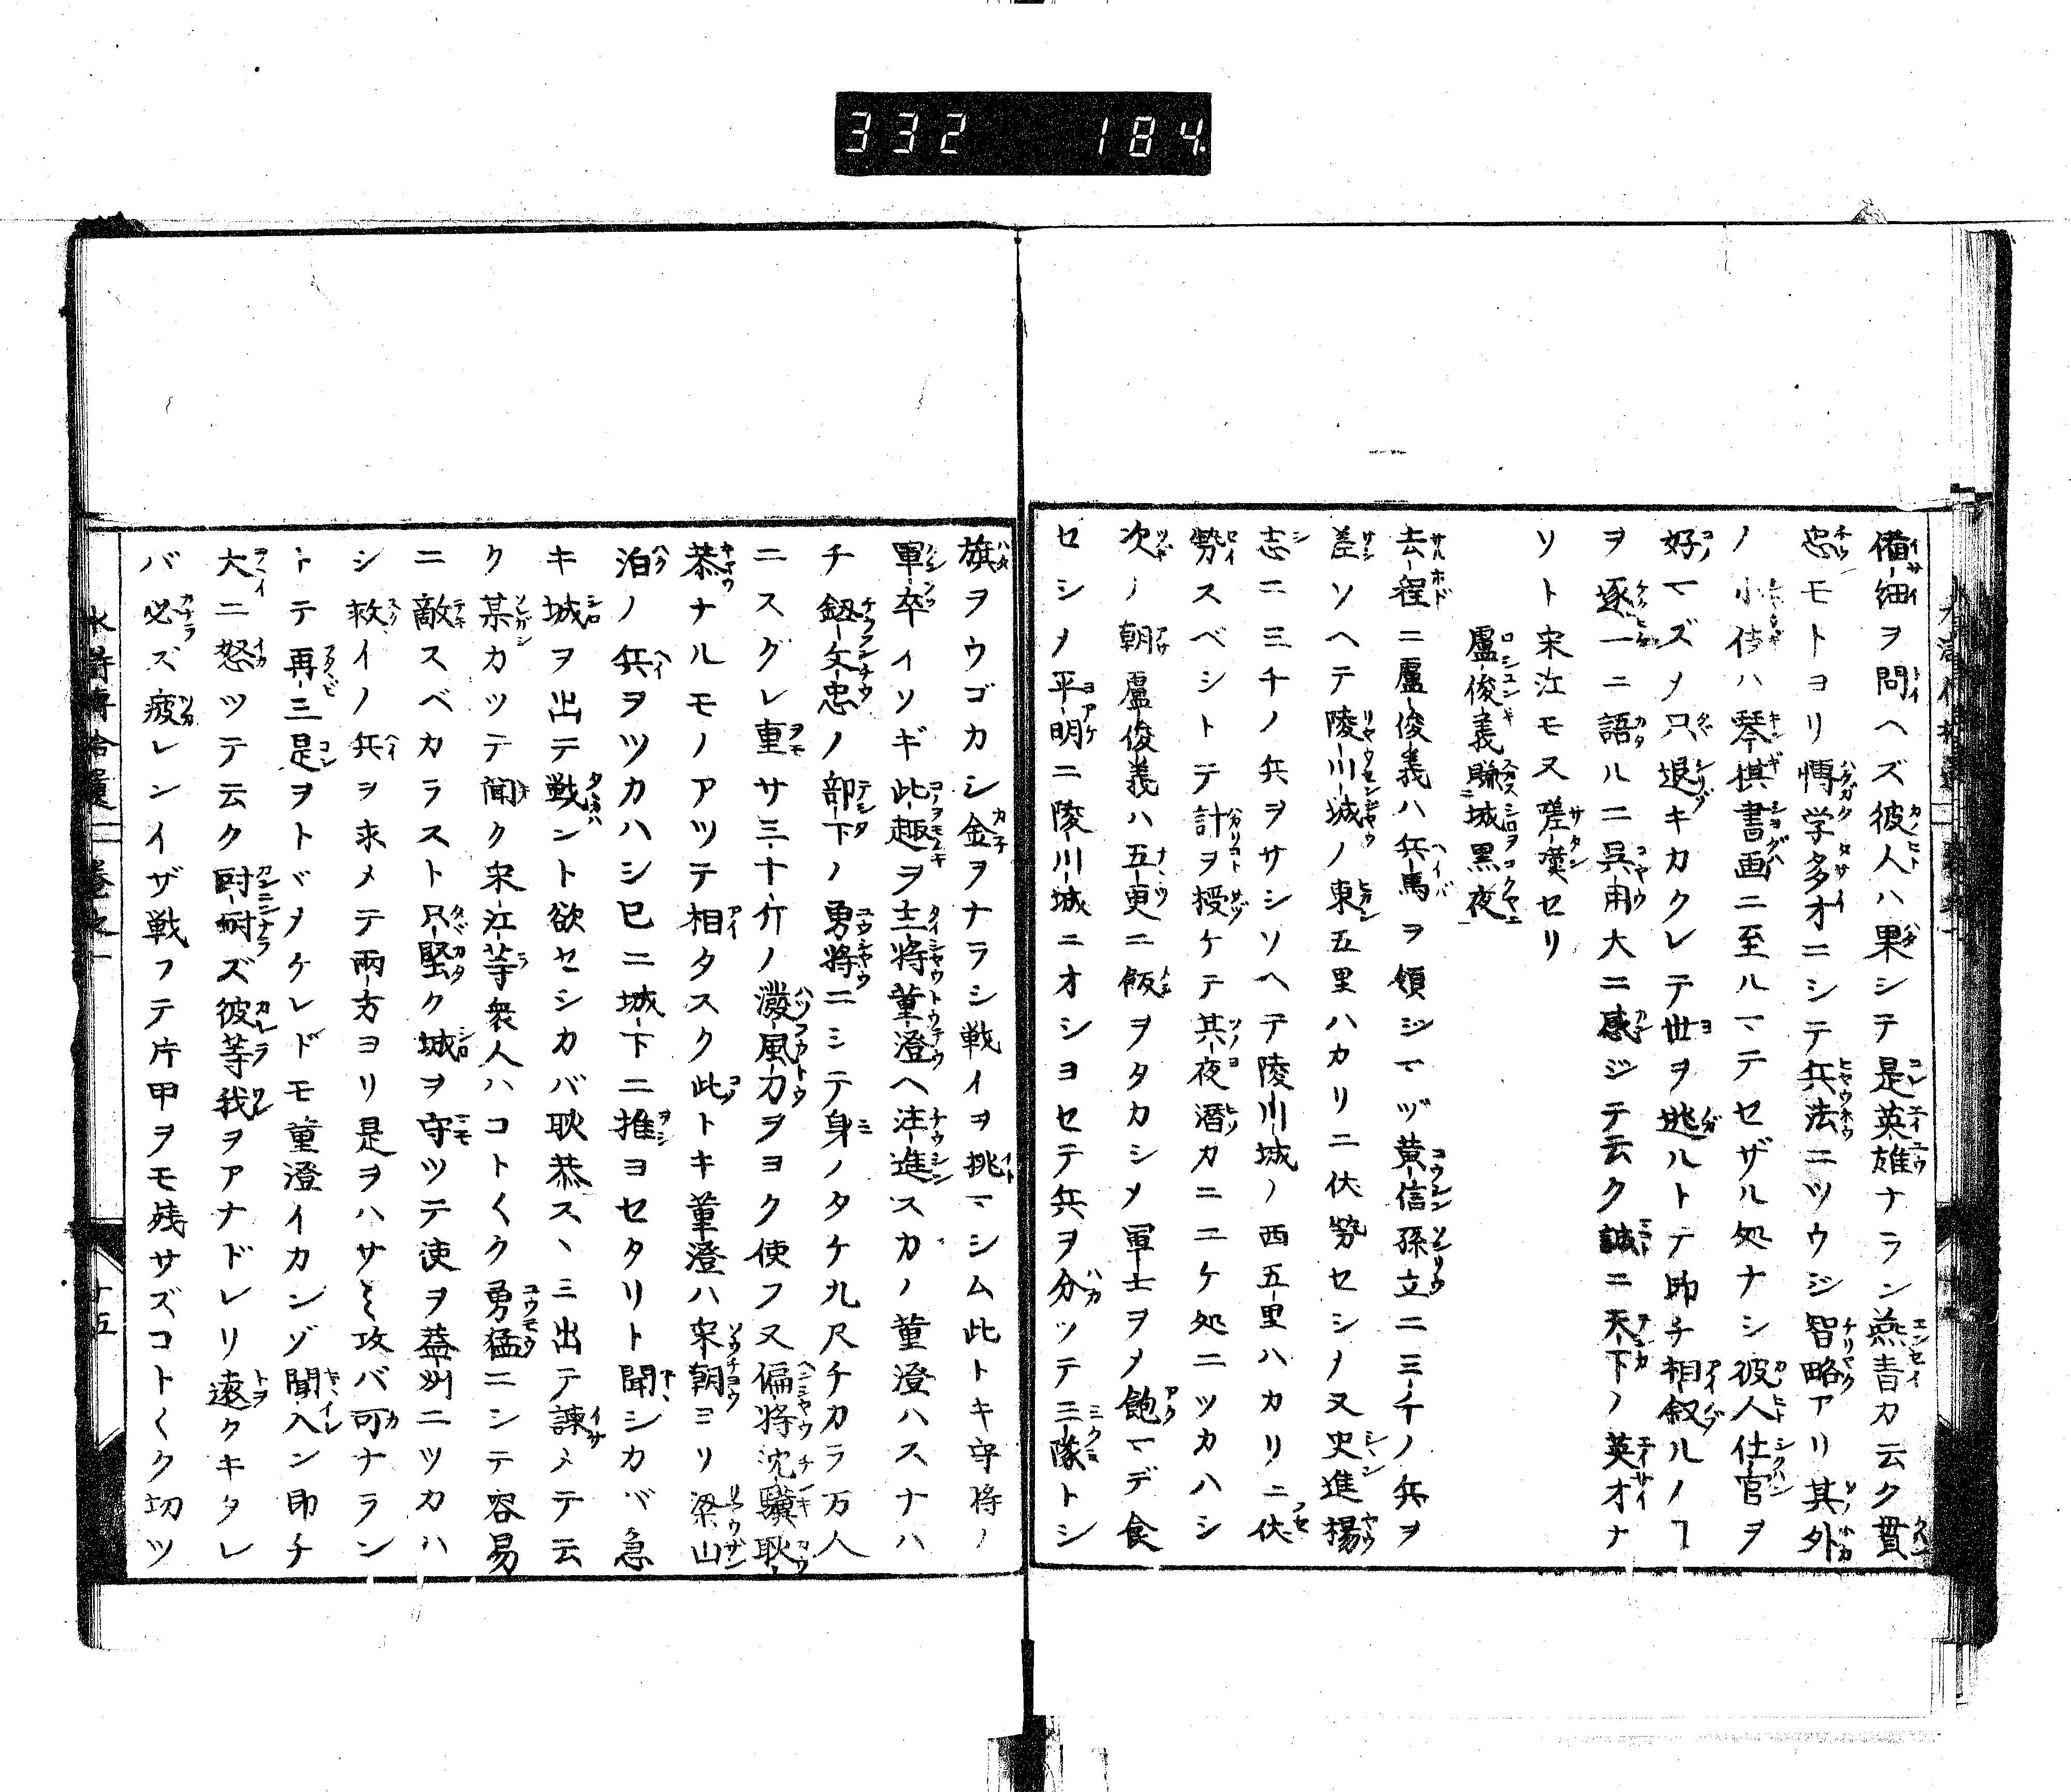 332 184
備細ヲ問ヘズ彼人ハ果シテ是英雄ナラン燕青カ云ク貫
忠モトヨリ博学多才ニシテ兵法ニツウジ智略アリ其外
ノ小伎ハ琴棋書画ニ至ルマテセザル処ナシ彼人仕官ヲ
好マズノ只退キカクレテ世ヲ逃ルトテ即チ相叙ルノヿ
ヲ逐一ニ語ルニ呉用大ニ感ジテ云ク誠ニ天下ノ英才ナ
リト宋江モ又嗟嘆セリ
盧俊義賺城黒夜
去程ニ盧俊義ハ兵馬ヲ領シマヅ黄信孫立ニ三千ノ兵ヲ
差ソヘテ陵川城ノ東五里ハカリニ伏勢セシメ又史進楊
志ニ三千ノ兵ヲサシソヘテ陵川城ノ西五里ハカリニ伏
勢スベシトテ計ヲ授ケテ其夜潜カニ二ケ処ニツカハシ
次ノ朝盧俊義ハ五更ニ飯ヲタカシメ軍士ヲメ飽マデ食
セシメ平明ニ陵川城ニオシヨセテ兵ヲ分ツテ三隊トシ
旗ヲウゴカシ金ヲナラシ戦イヲ挑マシム此トキ守将ノ
軍卒イソギ此趣ヲ主将董澄ヘ注進スカノ董澄ハスナハ
チ鈕文忠ノ部下ノ勇将ニシテ身ノタケ九尺チカラ万人
ニスグレ重サ三十斤ノ溌風刀ヲヨク使フ又偏将沈驥耿
恭ナルモノアツテ相タスク此トキ董澄ハ宋朝ヨリ梁山
泊ノ兵ヲツカハシ已ニ城下ニ推ヨセタリト聞シカバ急
キ城ヲ出テ戦ント欲セシカバ耿恭スヽミ出テ諫メテ云
ク某カツテ聞ク宋江等衆人ハコト〱ク勇猛ニシテ容易
ニ敵スベカラスト只堅ク城ヲ守ツテ使ヲ蓋州ニツカハ
シ救イノ兵ヲ求メテ両方ヨリ是ヲハサミ攻バ可ナラン
トテ再三是ヲトヾメケレドモ董澄イカンゾ聞入ン即チ
大ニ怒ツテ云ク耐ズ彼等我ヲアナドレリ遠クキタレ
バ必ズ疲レンイザ戦フテ片甲ヲモ残サズコト〱ク切ツ
水滸傳拾遺 巻之一 十五